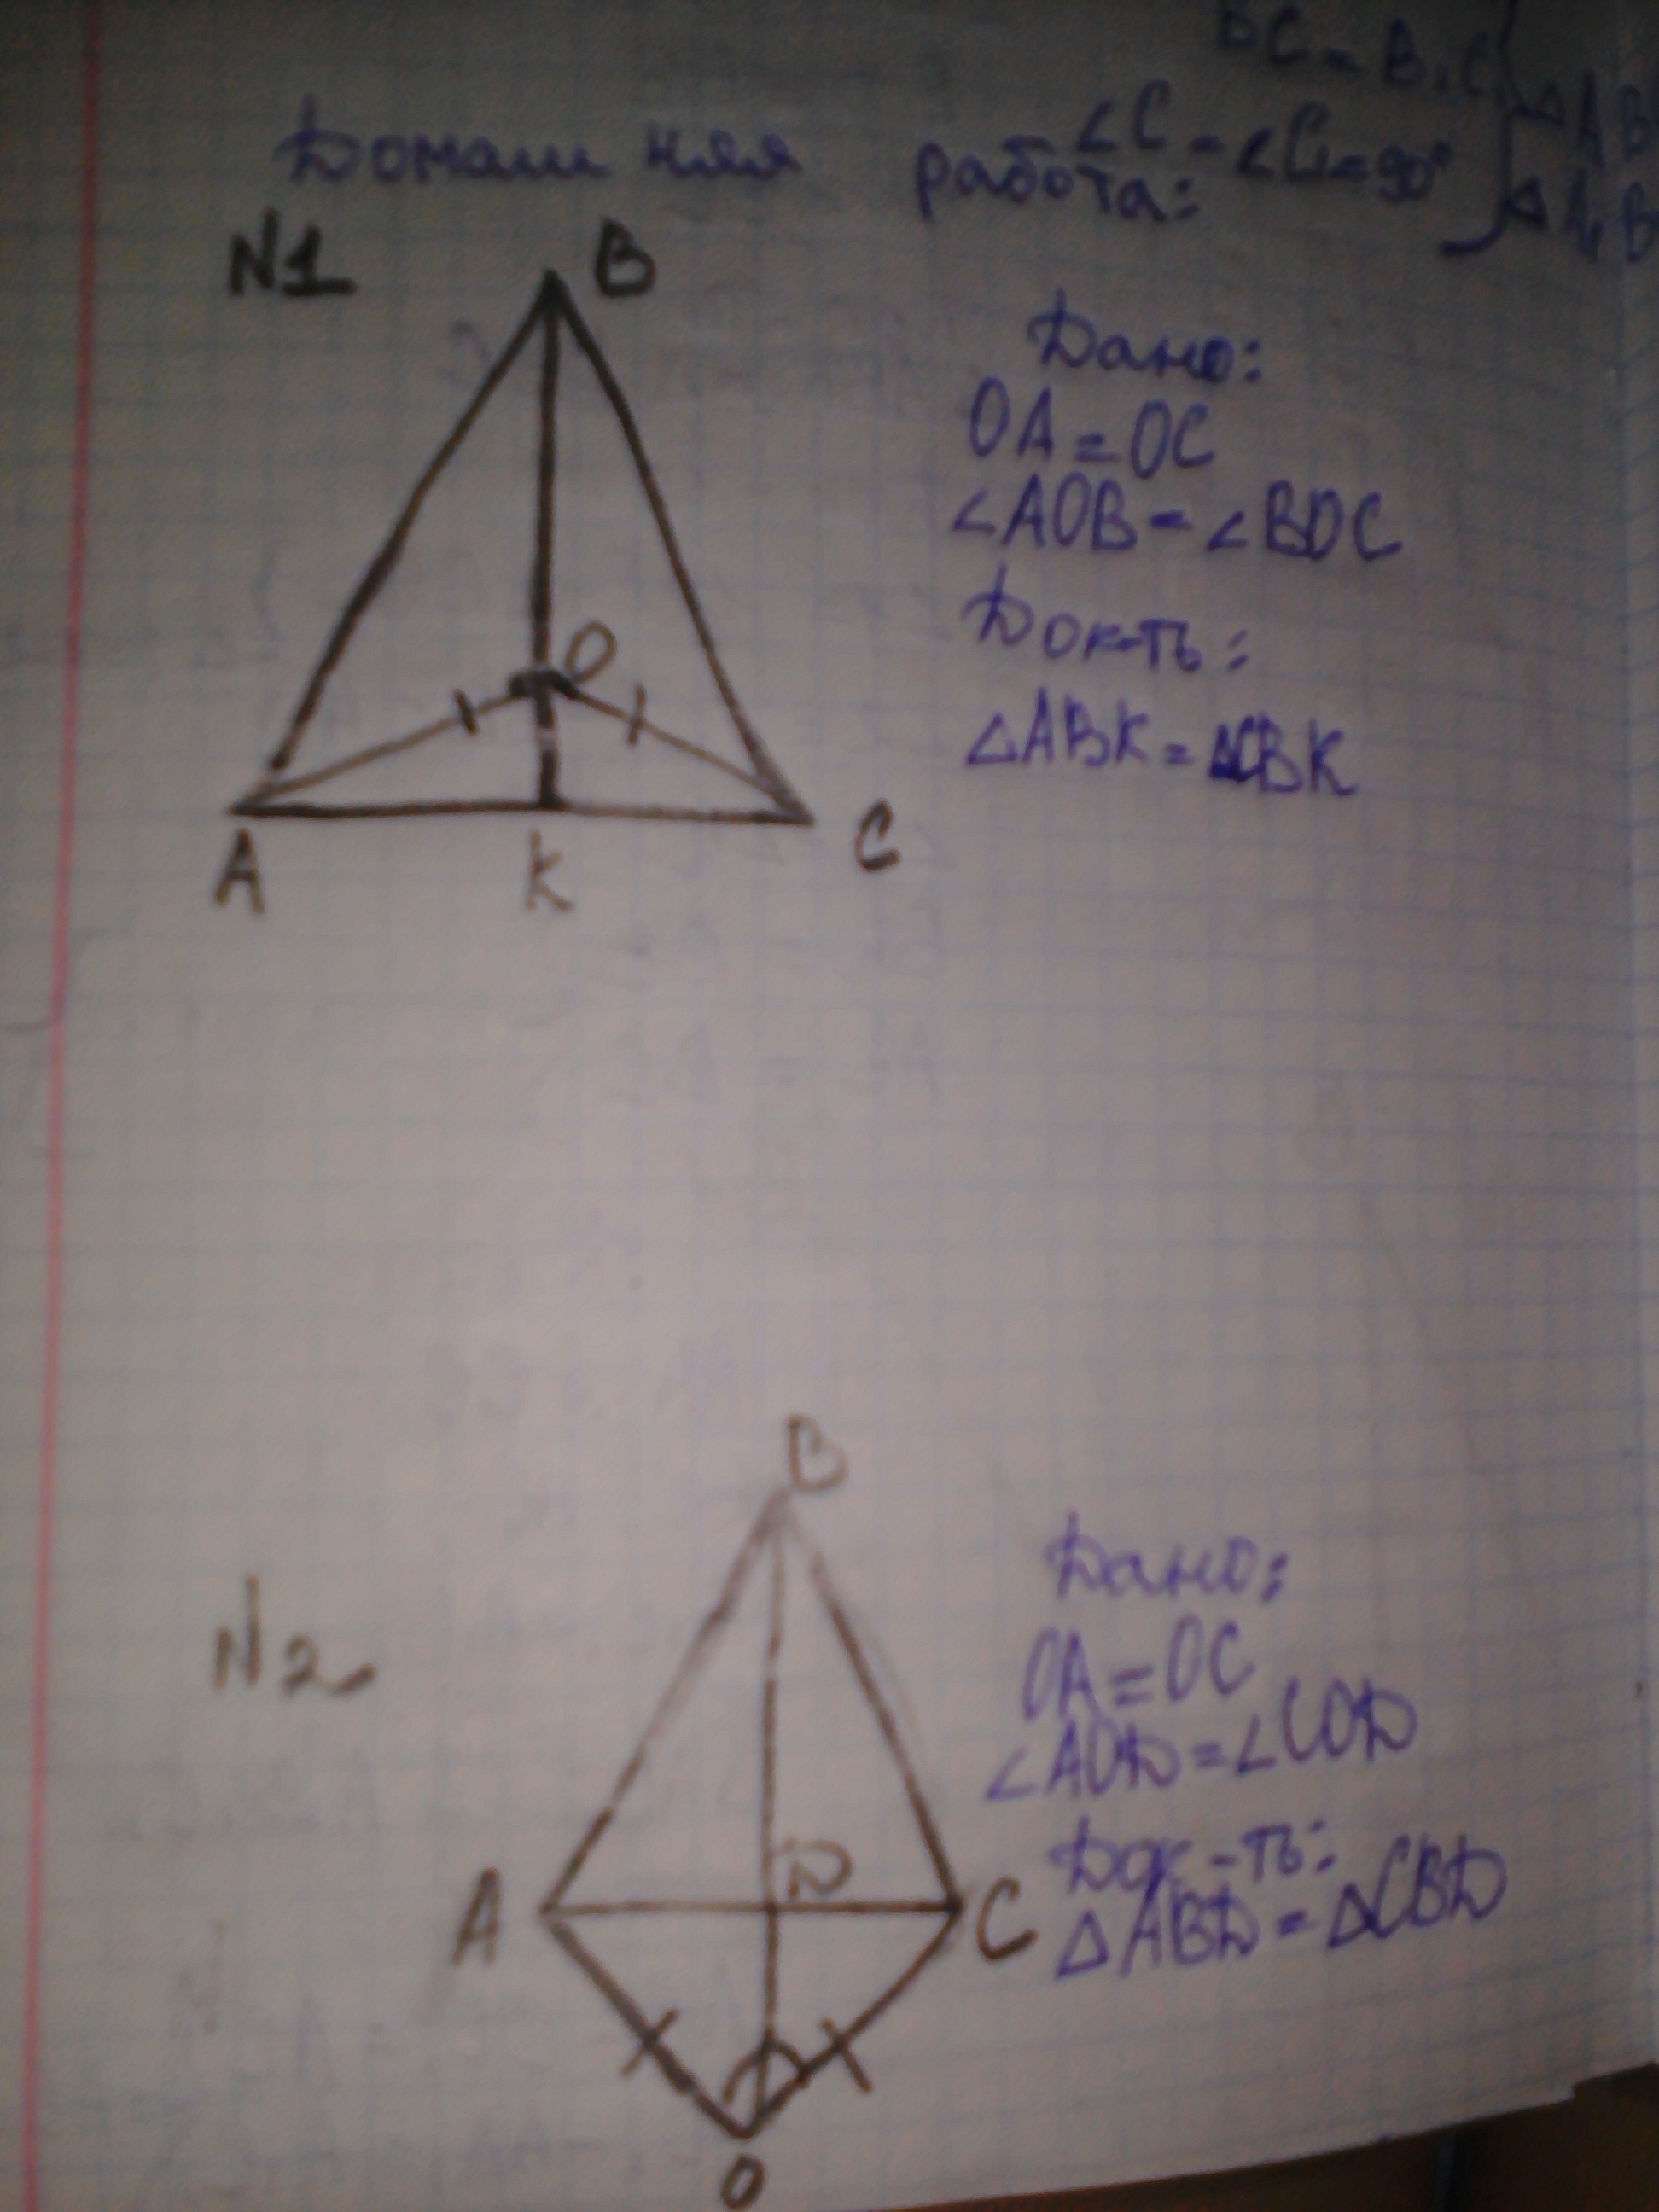 BC = B₁C₁
∠C = ∠C₁ = 90°
△AB
△A₁B
Домашняя работа:
N1
B
Дано:
OA = OC
∠AOB = ∠BOC
Док-ть:
△ABK = △CBK
O
A
K
C
N2
B
Дано:
OA = OC
∠AOD = ∠COD
Док-ть:
△ABD = △CBD
D
A
C
O